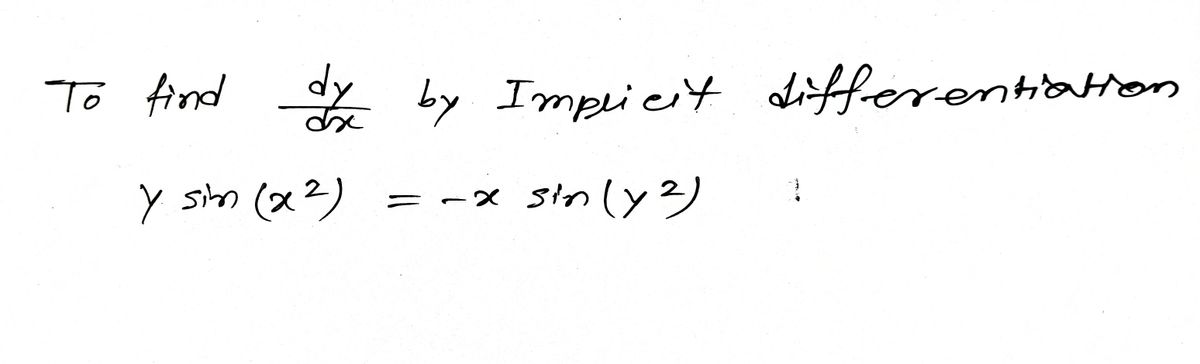 To find dy/dx by Implicit differentiation
y sin (x²) = -x sin(y²)